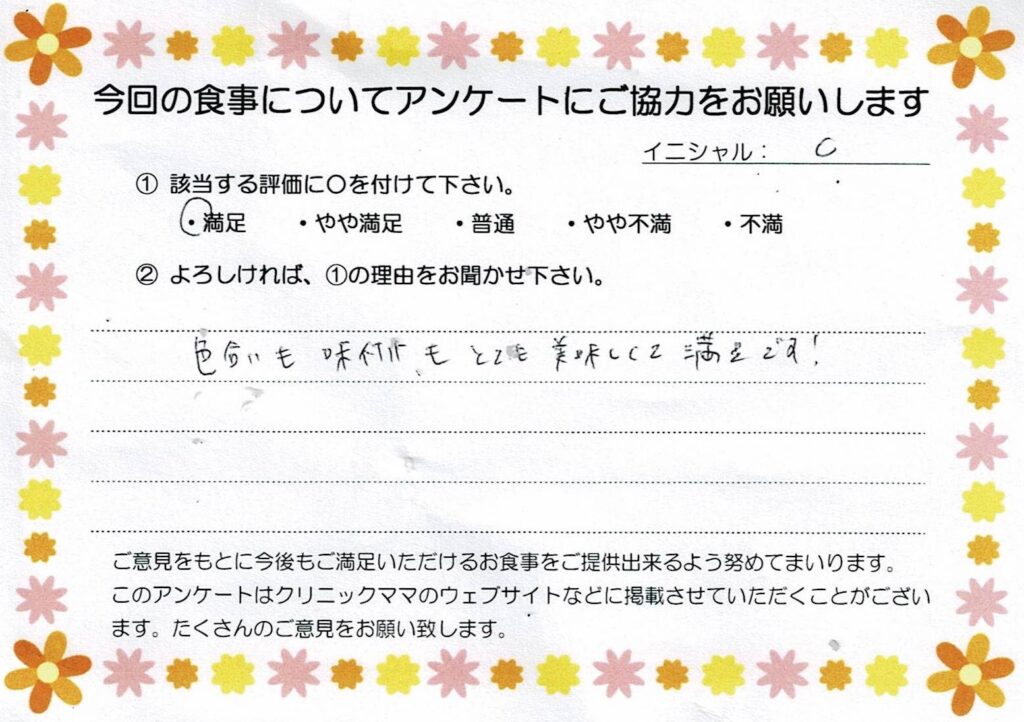 今回の食事についてアンケートにご協力をお願いします
イニシャル： C
① 該当する評価に〇を付けて下さい。
・満足 ・やや満足 ・普通 ・やや不満 ・不満
② よろしければ、①の理由をお聞かせ下さい。
色合いも 味付けも とても 美味しくて 満足です！
ご意見をもとに今後もご満足いただけるお食事をご提供出来るよう努めてまいります。
このアンケートはクリニックママのウェブサイトなどに掲載させていただくことがござい
ます。たくさんのご意見をお願い致します。